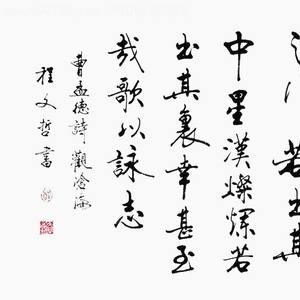 之行若出其
中星漢燦爛若
出其裏幸甚至
哉歌以詠志
曹孟德詩觀滄海
程文哲書